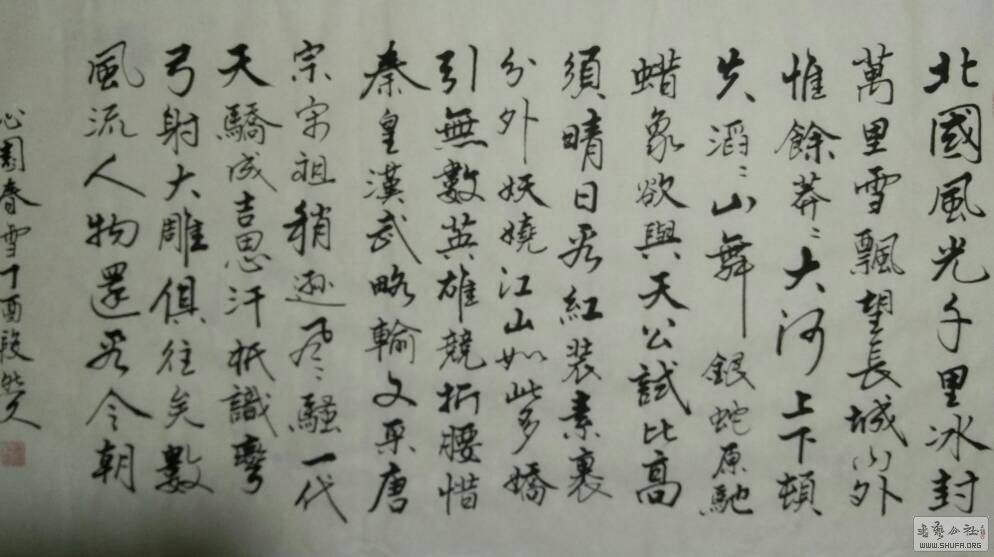 北國風光千里冰封
萬里雪飄望長城内外
惟餘莽〻大河上下頓
失滔〻山舞銀蛇原馳
蜡象欲與天公試比高
須晴日看紅装素裹
分外妖嬈江山如此多嬌
引無數英雄競折腰惜
秦皇漢武略輸文采唐
宗宋祖稍遜風〻騷一代
天驕成吉思汗衹識彎
弓射大雕俱往矣數
風流人物還看今朝
沁園春雪丁酉段
書藝公社
WWW.SHUFA.ORG